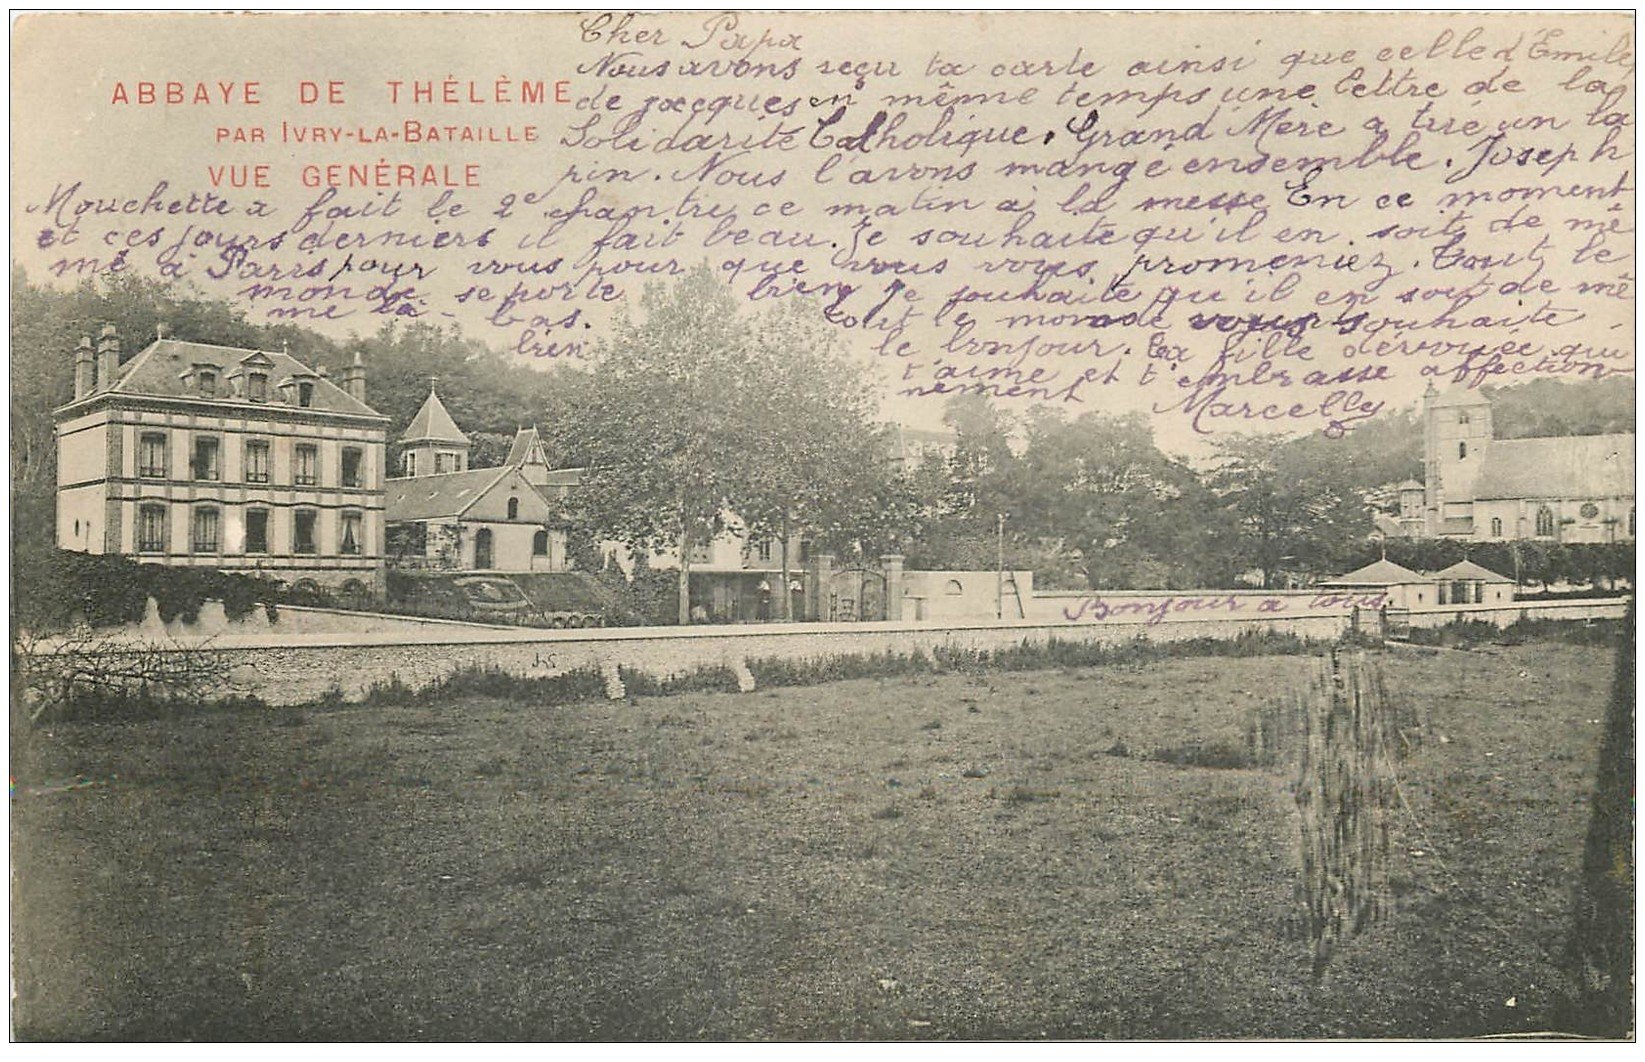 ABBAYE DE THÉLÈME
PAR IVRY-LA-BATAILLE
VUE GENÉRALE
Cher Papa
Nous avons reçu ta carte ainsi que celle d'Emile,
de Jacques en même temps une lettre de la
Solidarité Catholique. Grand Mère a tiré un la
pin. Nous l'avons mangé ensemble. Joseph
Mouchette a fait le 2e chantre ce matin à la messe En ce moment
et ces jours derniers il fait beau. Je souhaite qu'il en soit de mê
me à Paris pour vous pour que vous vous promeniez. Tout le
monde se porte bien Je souhaite qu'il en soit de mê
me là-bas. Tout le monde vous souhaite
bien le bonjour. Ta fille dévouée qui
t'aime et t'embrasse affection
nement Marcelle
Bonjour a tous